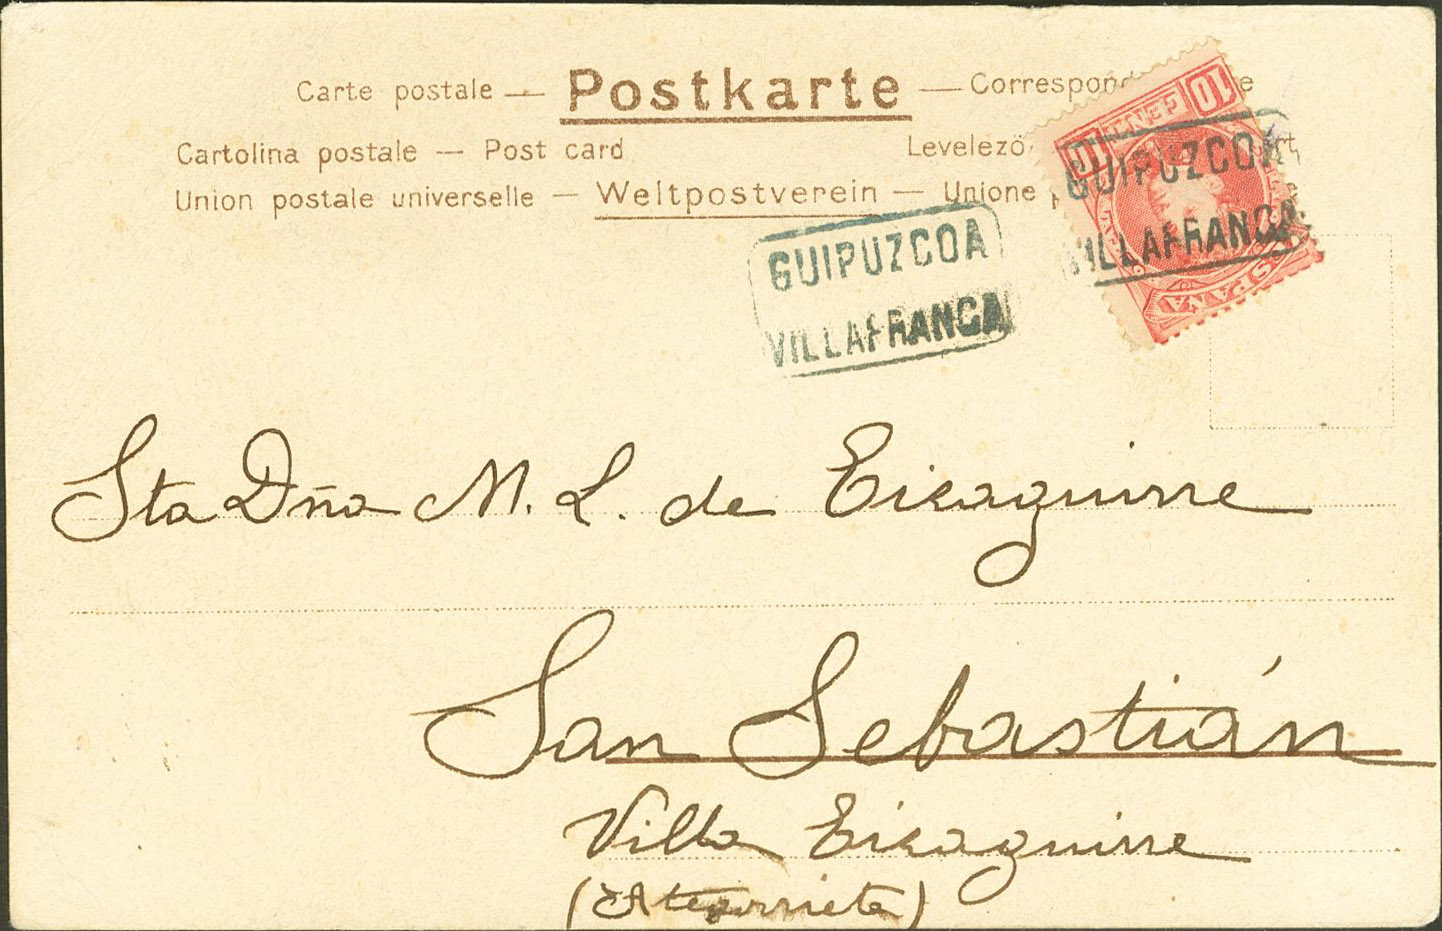 Carte postale — Postkarte — Correspon
Cartolina postale — Post card Levelezö
Union postale universelle — Weltpostverein — Unione
10 CENT 10
ESPAÑA
GUIPUZCOA
VILLAFRANCA
GUIPUZCOA
VILLAFRANCA
Sta Dña M. L. de Eizaguirre
San Sebastián
Villa Eizaguirre
(Ategorrieta)